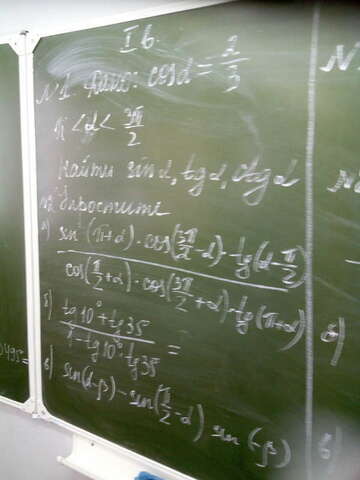 I в.
N1. Дано: cos α = 2/3
π < α < 3π/2
Найти sin α, tg α, ctg α
N2 Упростите
а) sin²(π+α) · cos(3π/2 - α) · tg(α - π/2) / cos(π/2 + α) · cos(3π/2 + α) · tg(π+α)
б) tg 10° + tg 35 / 1 - tg 10° · tg 35 =
в) sin(α-β) - sin(π/2 - α) sin(-β)
N
N
б)
в)